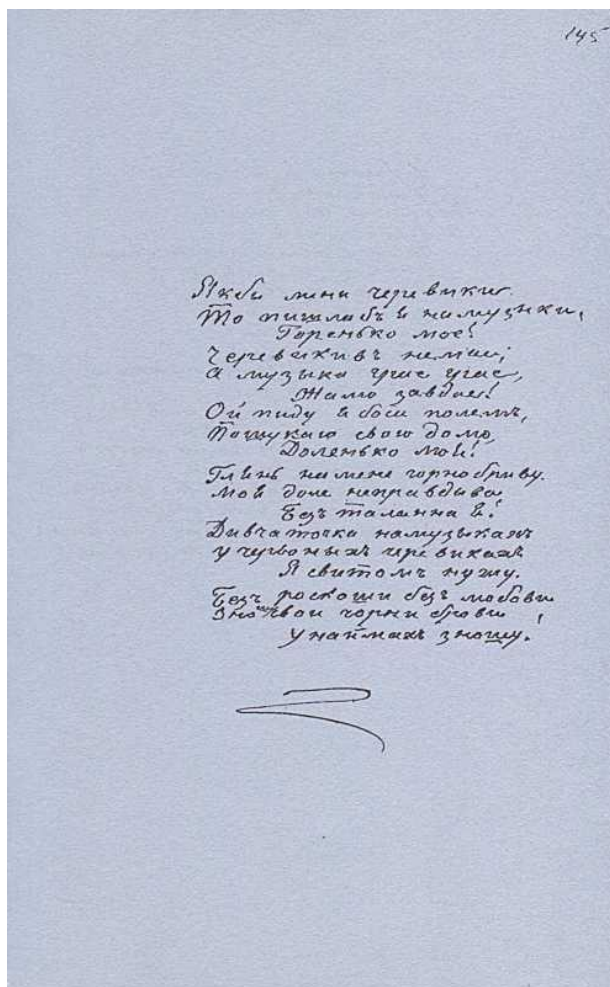 145
Якби мини черевики.
То пишлабъ й на музики,
Горенько мое!
Черевикивъ немає;
А музыка грає грає,
Жалю завдає!
Ой пиду я боса полемъ,
Пошукаю свою долю,
Доленько моя!
Глянь на мене чорнобриву.
Моя доле неправдива,
Безъ таланна я!
Дивчаточка на музыкахъ
У червоныхъ черевикахъ
Я свитомъ нужу.
Безъ роскоши безъ любови
Зношу свои чорни брови,
У наймахъ зношу.